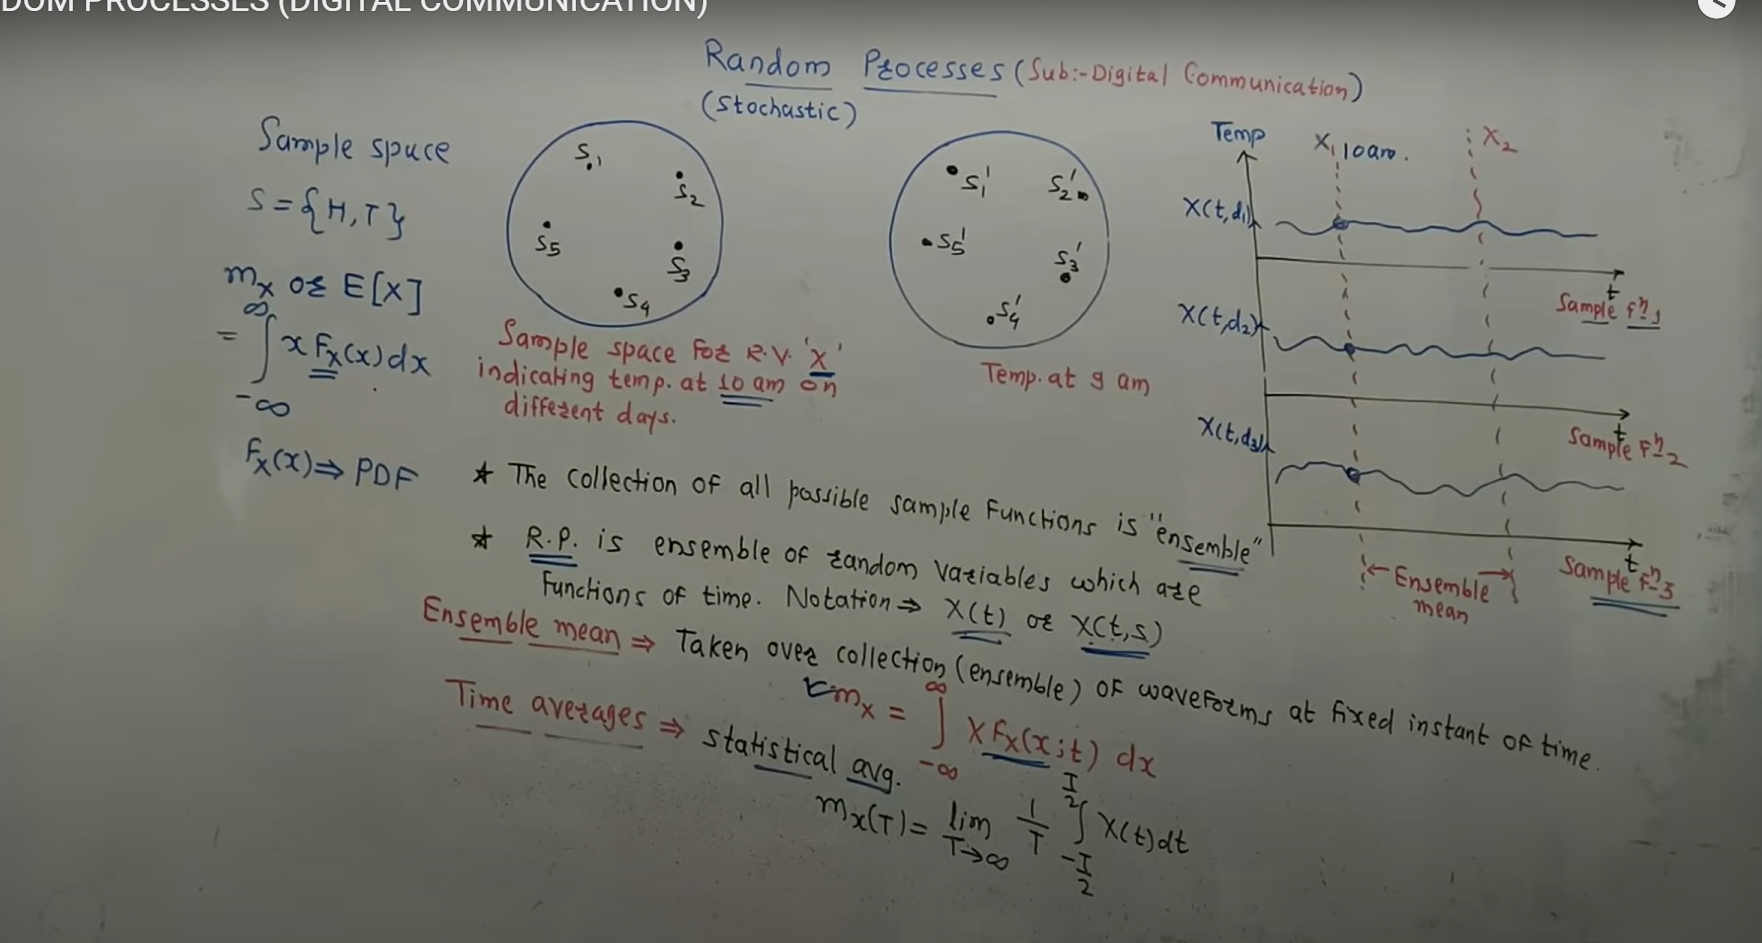 DOM PROCESSES (DIGITAL COMMUNICATION)
Random Processes (Sub:-Digital Communication)
(Stochastic)
Sample space
S = {H, T}
mx or E[X]
= ∫ x Fx(x) dx
∞
-∞
Fx(x) ⇒ PDF
S1
S2
S3
S4
S5
Sample space for R.V. 'X'
indicating temp. at 10 am on
different days.
S1'
S2'
S3'
S4'
S5'
Temp. at 9 am
Temp
X1 10am.
X2
X(t,d1)
t
Sample Fn 1
X(t,d2)
t
Sample Fn 2
X(t,d3)
t
Sample Fn 3
Ensemble
mean
★ The collection of all possible sample functions is "ensemble"
★ R.P. is ensemble of random variables which are
functions of time. Notation ⇒ X(t) or X(t,s)
Ensemble mean ⇒ Taken over collection (ensemble) of waveforms at fixed instant of time.
mx = ∫ X Fx(x;t) dx
∞
-∞
Time averages ⇒ statistical avg.
mx(T) = lim T→∞ 1/T ∫ X(t) dt
T/2
-T/2